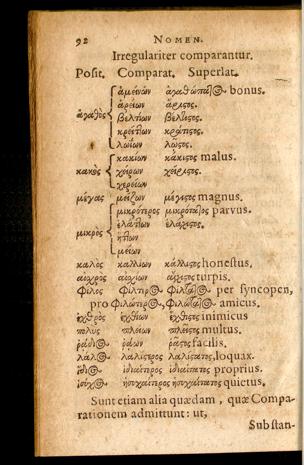 92 NOMEN.
Irregulariter comparantur.
Posit. Comparat. Superlat.
ἀμείνων ἀγαθώτατος bonus.
ἀρείων ἄριστος.
ἀγαθὸς βελτίων βέλτιστος.
κρείττων κράτιστος.
λωΐων λῶστος.
κακίων κάκιστος malus.
κακὸς χείρων χείριστος.
χερείων
μέγας μείζων μέγιστος magnus.
μικρότερος μικρότατος parvus.
μικρὸς ἐλάττων ἐλάχιστος.
ἥττων
μείων
καλὸς καλλίων κάλλιστος honestus.
αἰσχρὸς αἰσχίων αἴσχιστος turpis.
φίλος φίλτερος φίλτατος per syncopen,
pro φιλώτερος, φιλώτατος amicus.
ἐχθρὸς ἐχθίων ἔχθιστος inimicus
πολὺς πλείων πλεῖστος multus.
ῥᾴδιος ῥᾴων ῥᾷστος facilis.
λάλος λαλίστερος λαλίστατος, loquax.
ἴδιος ἰδιαίτερος ἰδιαίτατος proprius.
ἥσυχος ἡσυχαίτερος ἡσυχαίτατος quietus.
Sunt etiam alia quædam, quæ Compa-
rationem admittunt: ut,
Substan-